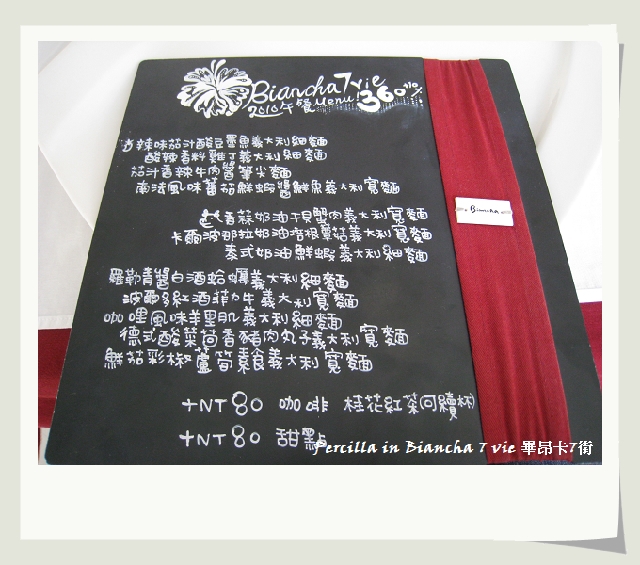 Biancha 7 vie
2010午餐Menu 360+10%
酸辣味茄汁酸豆墨魚義大利細麵
酸辣香料雞丁義大利細麵
茄汁香辣牛肉醬筆尖麵
南法風味蕃茄鮮蝦醬鮮魚義大利寬麵
香蒜奶油干貝蟹肉義大利寬麵
卡爾波那拉奶油培根蕈菇義大利寬麵
泰式奶油鮮蝦義大利細麵
羅勒青醬白酒蛤蠣義大利細麵
波爾多紅酒菲力牛義大利寬麵
咖哩風味羊里肌義大利細麵
德式酸菜茴香豬肉丸子義大利寬麵
鮮菇彩椒蘆筍素食義大利寬麵
+NT80 咖啡 桂花紅茶(可續杯)
+NT80 甜點
Biancha
Percilla in Biancha 7 vie 畢昂卡7街